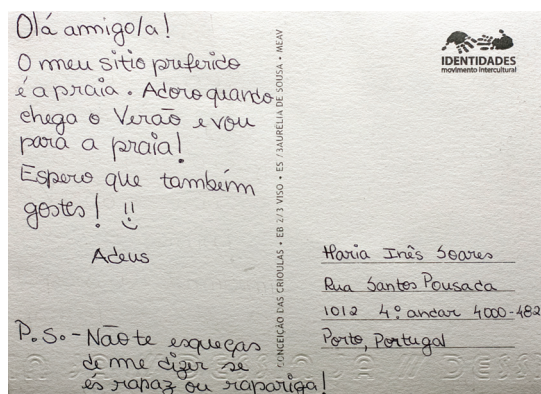 Olá amigo/a!
O meu sitio preferido
é a praia. Adoro quando
chega o Verão e vou
para a praia!
Espero que também
gostes! !!
Adeus
P.S. - Não te esqueças
de me dizer se
és rapaz ou rapariga!
CONCEIÇÃO DAS CRIOULAS • EB 2/3 VISO • ES /3AURÉLIA DE SOUSA • MEAV
IDENTIDADES
movimento intercultural
Maria Inês Soares
Rua Santos Pousada
1012 4º andar 4000-482
Porto, Portugal